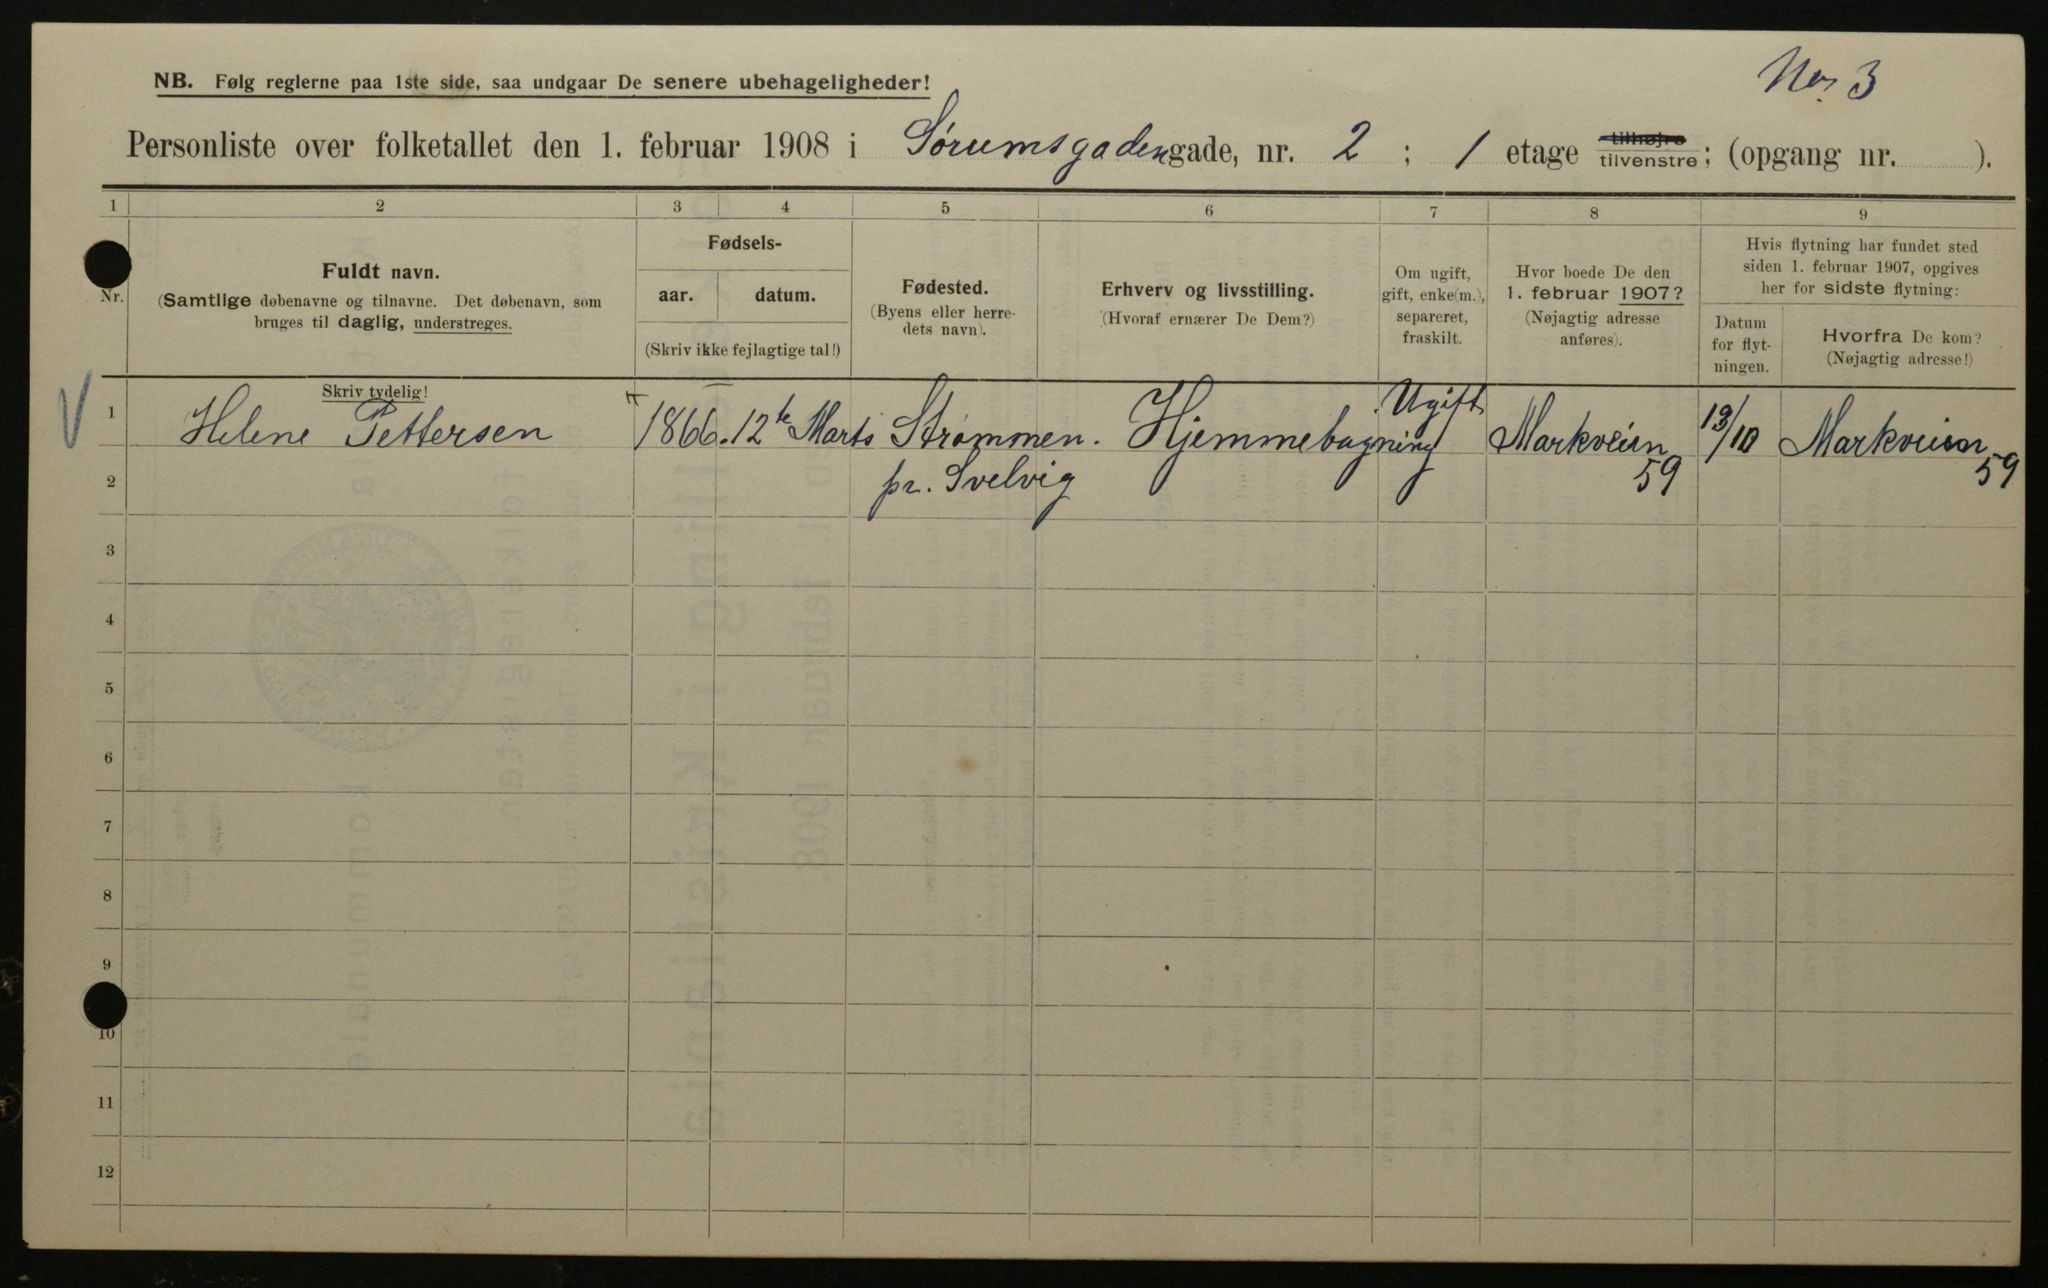 No 3
NB. Følg reglerne paa 1ste side, saa undgaar De senere ubehageligheder!
Personliste over folketallet den 1. februar 1908 i Sørumsgaden gade, nr. 2 ; 1 etage tilhøjre tilvenstre ; (opgang nr. ).
1 2 3 4 5 6 7 8 9
Nr.
Fuldt navn.
(Samtlige døbenavne og tilnavne. Det døbenavn, som
bruges til daglig, understreges.
Skriv tydelig!
Fødsels-
aar. datum.
(Skriv ikke fejlagtige tal!)
Fødested.
(Byens eller herre-
dets navn).
Erhverv og livsstilling.
(Hvoraf ernærer De Dem?)
Om ugift,
gift, enke(m.),
separeret,
fraskilt.
Hvor boede De den
1. februar 1907?
(Nøjagtig adresse
anføres).
Hvis flytning har fundet sted
siden 1. februar 1907, opgives
her for sidste flytning:
Datum
for flyt-
ningen.
Hvorfra De kom?
(Nøjagtig adresse!)
1 Helene Pettersen 1866. 12te Marts Strømmen. Hjemmebagning Ugift Markveien 13/10 Markveien
2 pr. Svelvig 59 59
3
4
5
6
7
8
9
10
11
12